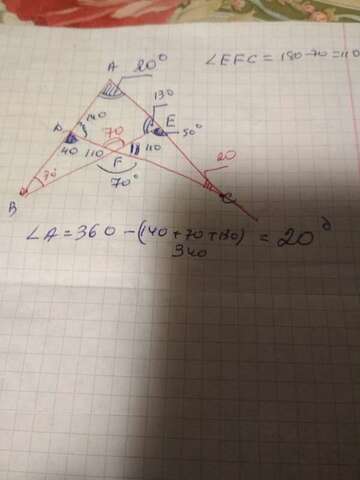 ∠EFC = 180-70 = 110
A 20°
130
E
50°
D 140
40 110 70 110
F
70°
30°
20
B
C
∠A = 360 - (140+70+130) = 20°
340